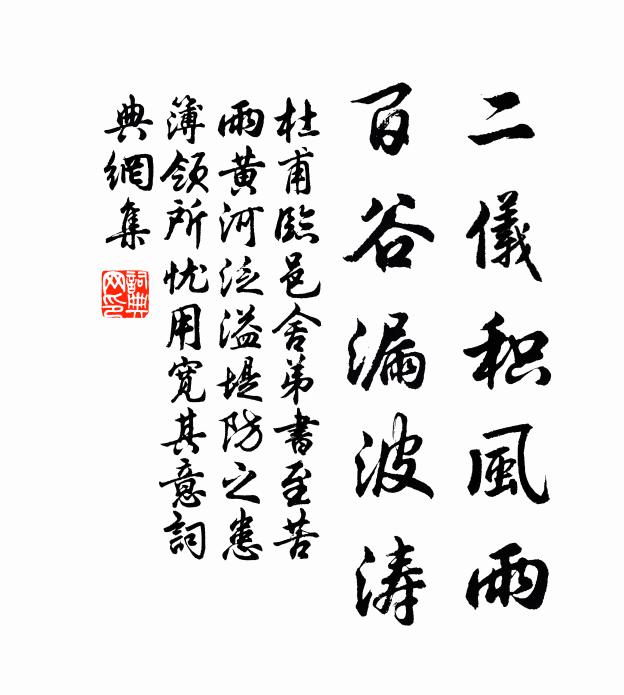 二儀积風雨
百谷漏波涛
杜甫臨邑舍弟書至苦
雨黄河泛溢堤防之患
簿領所忧用寛其意詞
典網集
詞典
网印